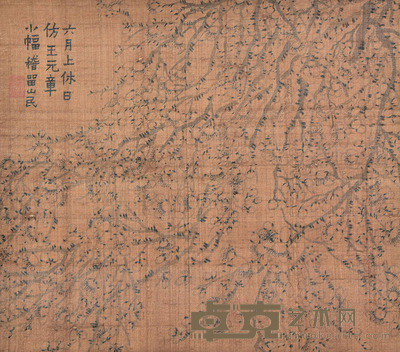 六月上休日
仿王元章
小幅稽留山民
艺术网